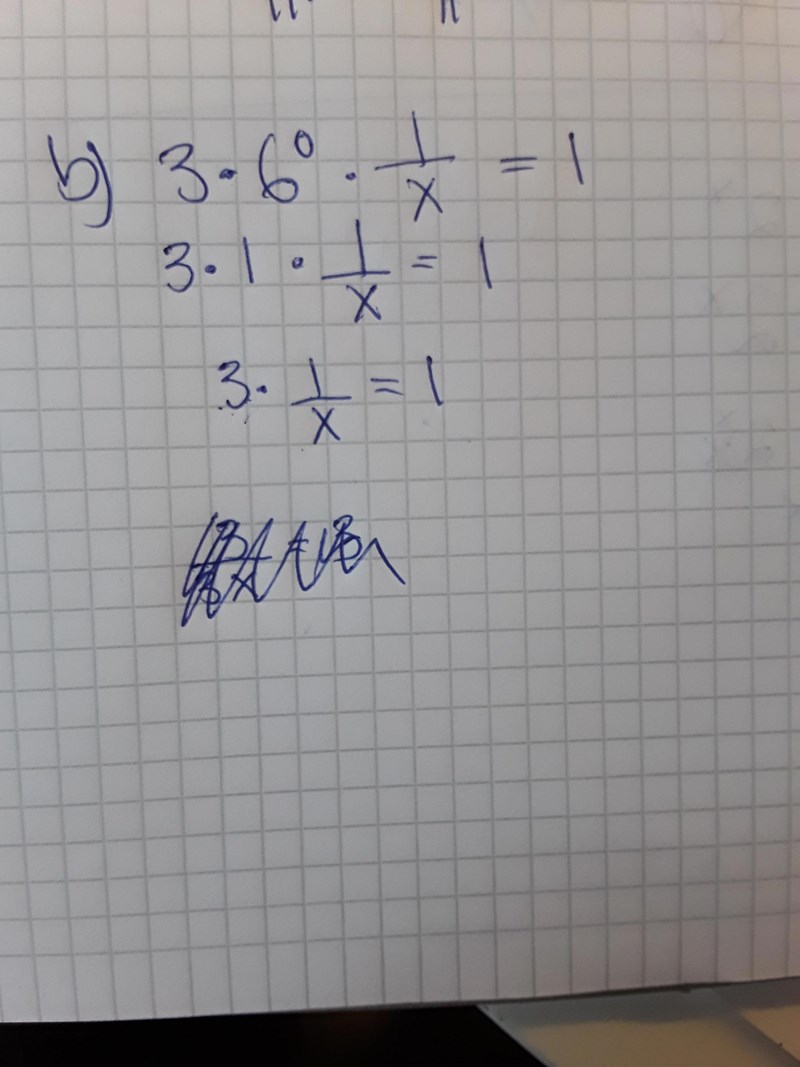 b) 3 · 6⁰ · 1/x = 1
3 · 1 · 1/x = 1
3 · 1/x = 1